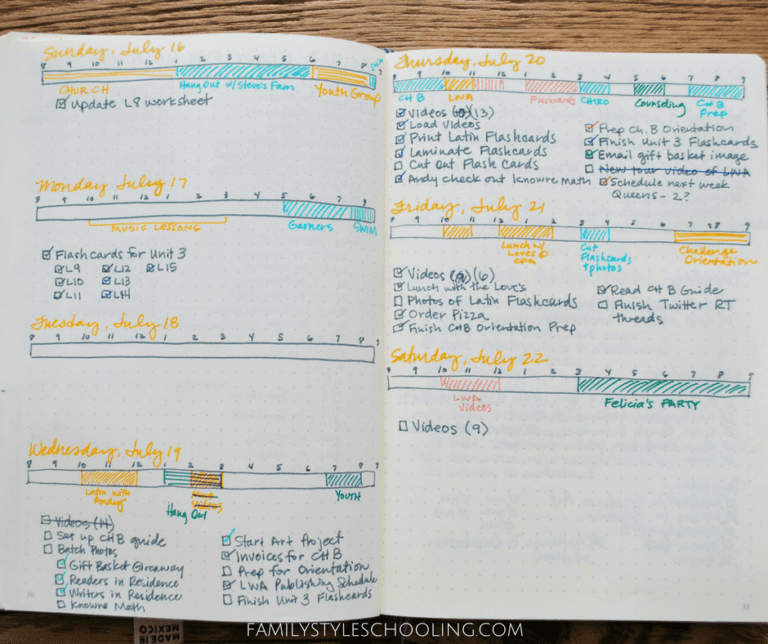 Sunday, July 16
8 9 10 11 12 1 2 3 4 5 6 7 8 9
CHURCH
Hang Out w/ Steve's Fam
Youth Group
Update L8 worksheet
Monday July 17
8 9 10 11 12 1 2 3 4 5 6 7 8 9
MUSIC LESSONS
Garners
SWIM
Flashcards for Unit 3
L9 L12 L15
L10 L13
L11 L14
Tuesday, July 18
8 9 10 11 12 1 2 3 4 5 6 7 8 9
Wednesday, July 19
8 9 10 11 12 1 2 3 4 5 6 7 8 9
Latin with
Andy
Hang Out
Videos
YOUTH
Videos (14)
Set up CHB guide
Batch Photos
Gift Basket Giveaway
Readers in Residence
Writers in Residence
Knowre Math
Start Art Project
Invoices for CHB
Prep for Orientation
LWA Publishing Schedule
Finish Unit 3 Flashcards
Thursday, July 20
8 9 10 11 12 1 2 3 4 5 6 7 8 9
CH B
LWA
Flashcards
CHIRO
Counseling
CH B
Prep
Videos (13)
Load Videos
Print Latin Flashcards
Laminate Flashcards
Cut Out Flash Cards
Andy check out Knowre Math
Prep Ch. B Orientation
Finish Unit 3 Flashcards
Email gift basket image
New tour video of LWA
Schedule next week
Queens - 2?
Friday, July 21
8 9 10 11 12 1 2 3 4 5 6 7 8 9
Lunch w/
Loves @
CFA
Cut
Flashcards
+ photos
Challenge
Orientation
Videos (6)
Lunch with the Love's
Photos of Latin Flashcards
Order Pizza
Finish CHB Orientation Prep
Read CH B Guide
Finish Twitter RT
threads
Saturday, July 22
8 9 10 11 12 1 2 3 4 5 6 7 8 9
LWA
Videos
Felicia's PARTY
Videos (9)
MADE IN
MEXICO
FAMILYSTYLESCHOOLING.COM